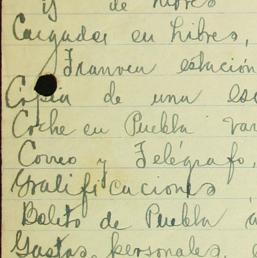 y de Libres
Cargador en Libres,
Tranvia estación
Copia de una es
Coche en Puebla var
Correo y Telégrafo,
Gratificaciones
Boleto de Puebla á
Gastos personales,